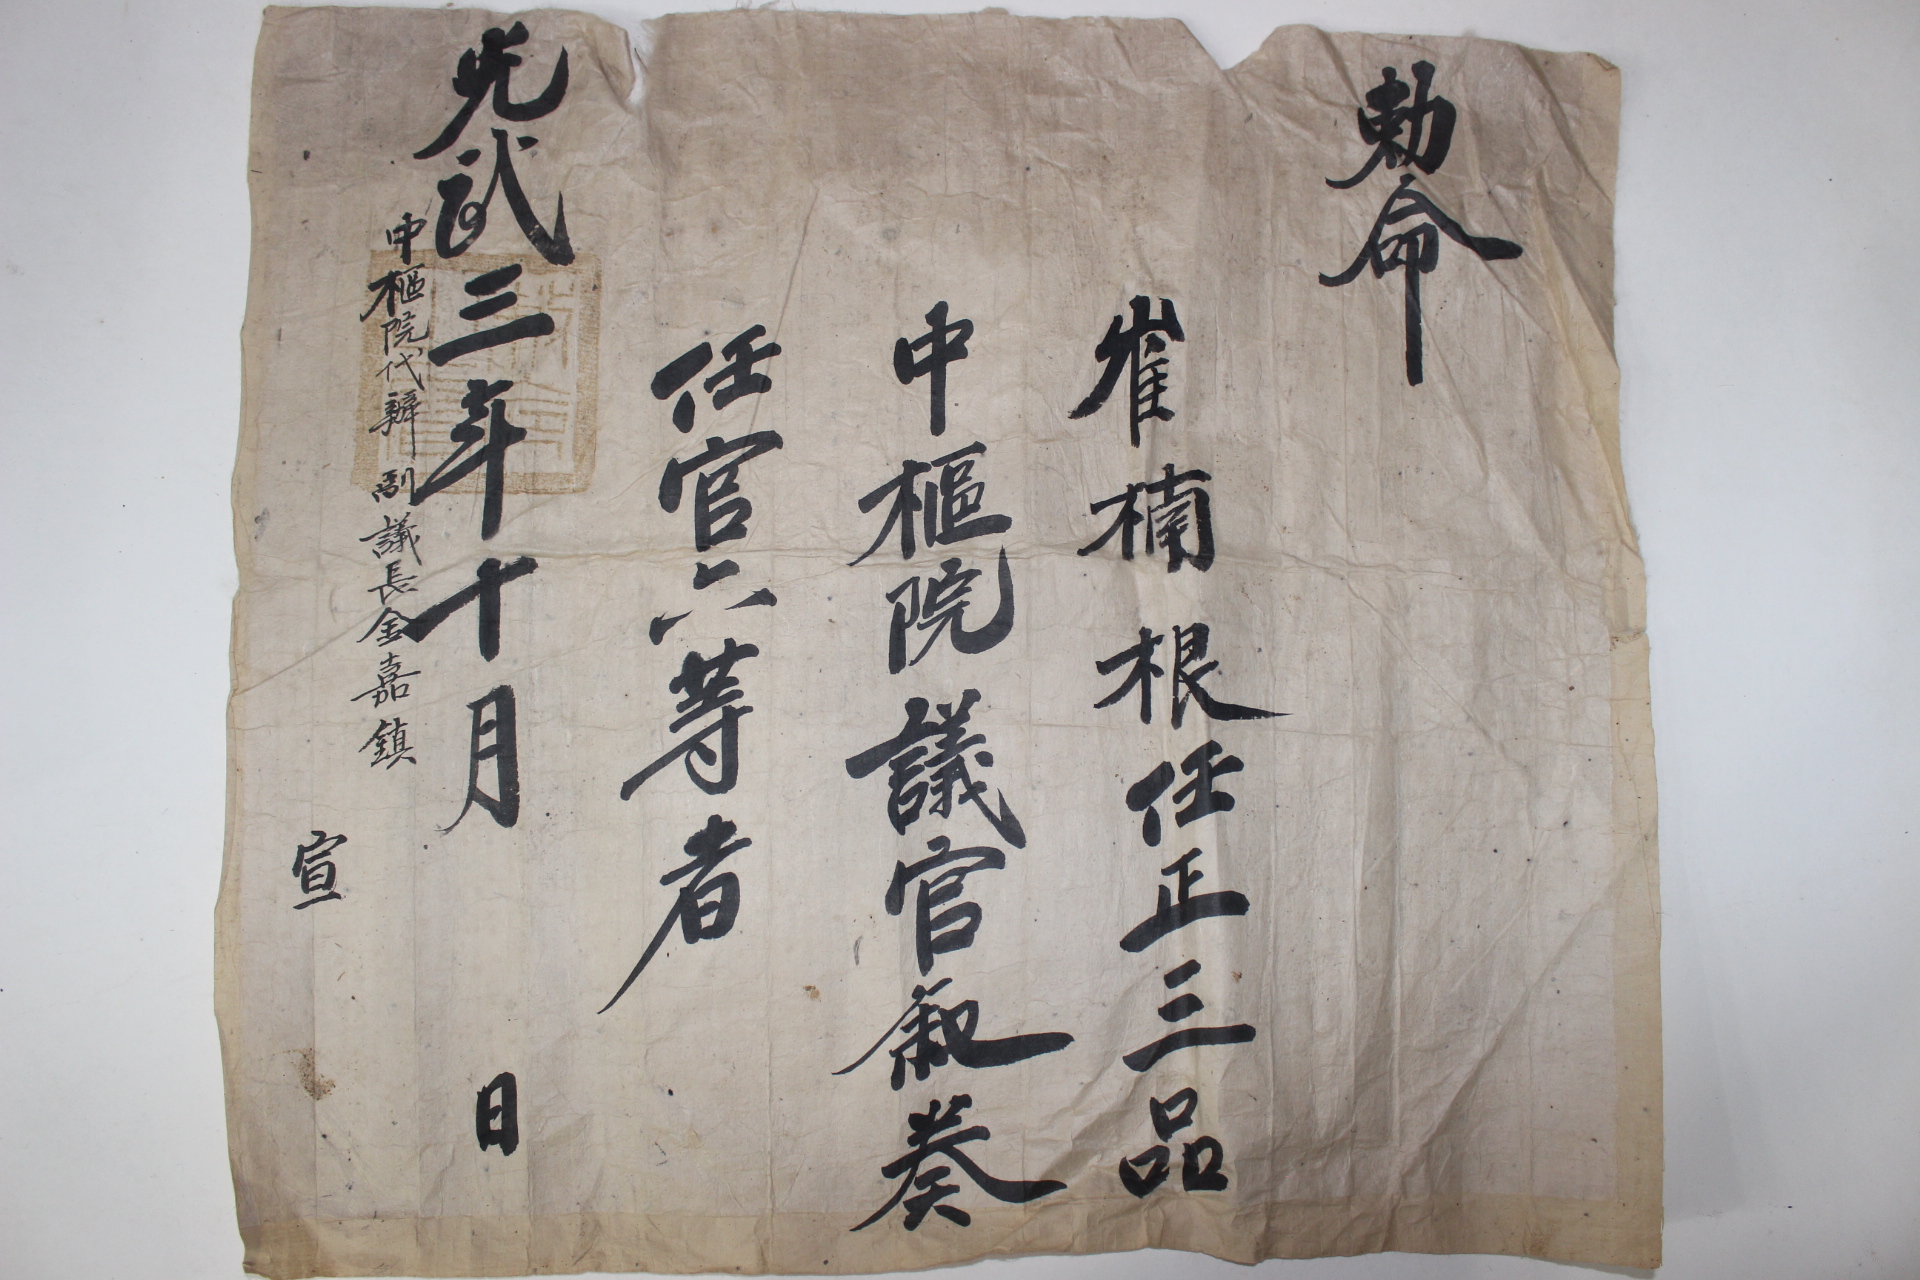 勅命
崔楠根任正三品
中樞院議官叙奏
任官六等者
光武三年十月 日
中樞院代辦副議長金嘉鎮 宣